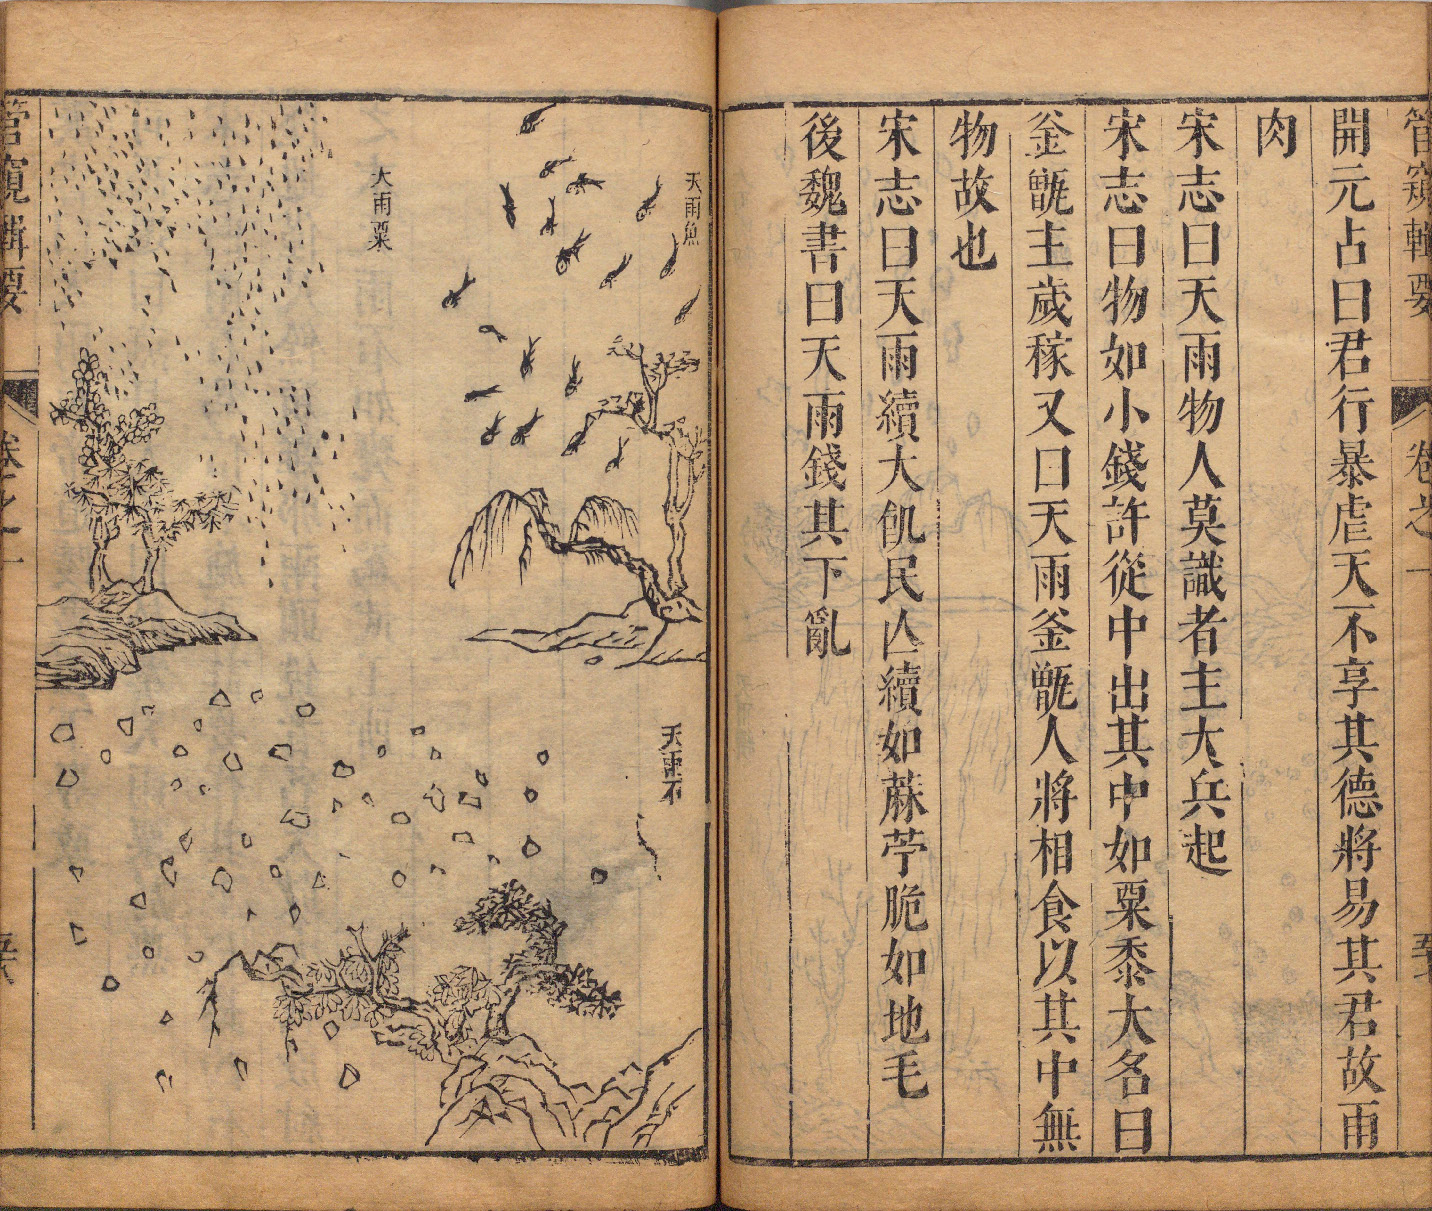 管窺輯要
卷之一
開元占曰君行暴虐天不享其德將易其君故雨
肉
宋志曰天雨物人莫識者主大兵起
宋志曰物如小錢許從中出其中如粟黍大名曰
釜甑主歲稼又曰天雨釜甑人將相食以其中無
物故也
宋志曰天雨續大飢民亾續如蔴苧脆如地毛
後魏書曰天雨錢其下亂
天雨魚
天雨粟
天雨石
管窺輯要
卷之一